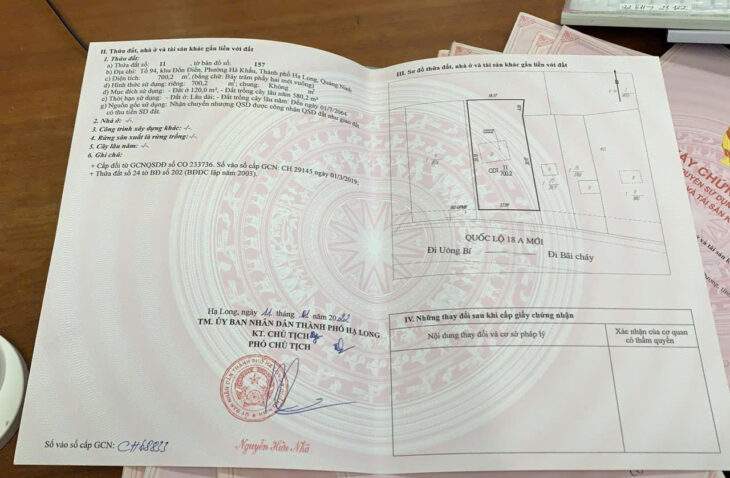 II. Thửa đất, nhà ở và tài sản khác gắn liền với đất
1. Thửa đất:
a) Thửa đất số: 11 , tờ bản đồ số: 157
b) Địa chỉ: Tổ 94, khu Đồn Điền, Phường Hà Khẩu, Thành phố Hạ Long, Quảng Ninh
c) Diện tích: 700,2 m², (bằng chữ: Bảy trăm phẩy hai mét vuông)
d) Hình thức sử dụng: riêng: 700,2 m²; chung: Không m²
đ) Mục đích sử dụng: - Đất ở 120,0 m²; - Đất trồng cây lâu năm 580,2 m²
e) Thời hạn sử dụng: - Đất ở: Lâu dài; - Đất trồng cây lâu năm: Đến ngày 01/7/2064
g) Nguồn gốc sử dụng: Nhận chuyển nhượng QSD được công nhận QSD đất như giao đất
có thu tiền SD đất.
2. Nhà ở: -/-
3. Công trình xây dựng khác: -/-
4. Rừng sản xuất là rừng trồng: -/-
5. Cây lâu năm: -/-
6. Ghi chú:
+ Cấp đổi từ GCNQSDĐ số CO 233736. Số vào sổ cấp GCN: CH 29145 ngày 01/3/2019;
+ Thửa đất số 24 tờ BĐ số 202 (BĐĐC lập năm 2003).
Hạ Long, ngày 11 tháng năm 2022
TM. ỦY BAN NHÂN DÂN THÀNH PHỐ HẠ LONG
KT. CHỦ TỊCH
PHÓ CHỦ TỊCH
Nguyễn Hữu Nhã
Số vào sổ cấp GCN: CH68833
III. Sơ đồ thửa đất, nhà ở và tài sản khác gắn liền với đất
11
ODT 700.2
QUỐC LỘ 18 A MỚI
Đi Uông Bí
Đi Bãi cháy
IV. Những thay đổi sau khi cấp giấy chứng nhận
Nội dung thay đổi và cơ sở pháp lý
Xác nhận của cơ quan
có thẩm quyền